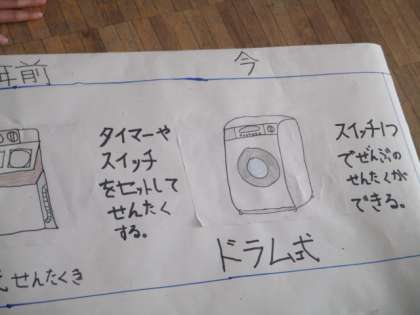 年前
今
タイマーや
スイッチ
をセットして
せんたく
する。
スイッチ1つ
でぜんぶの
せんたくが
できる。
ドラム式
式せんたくき